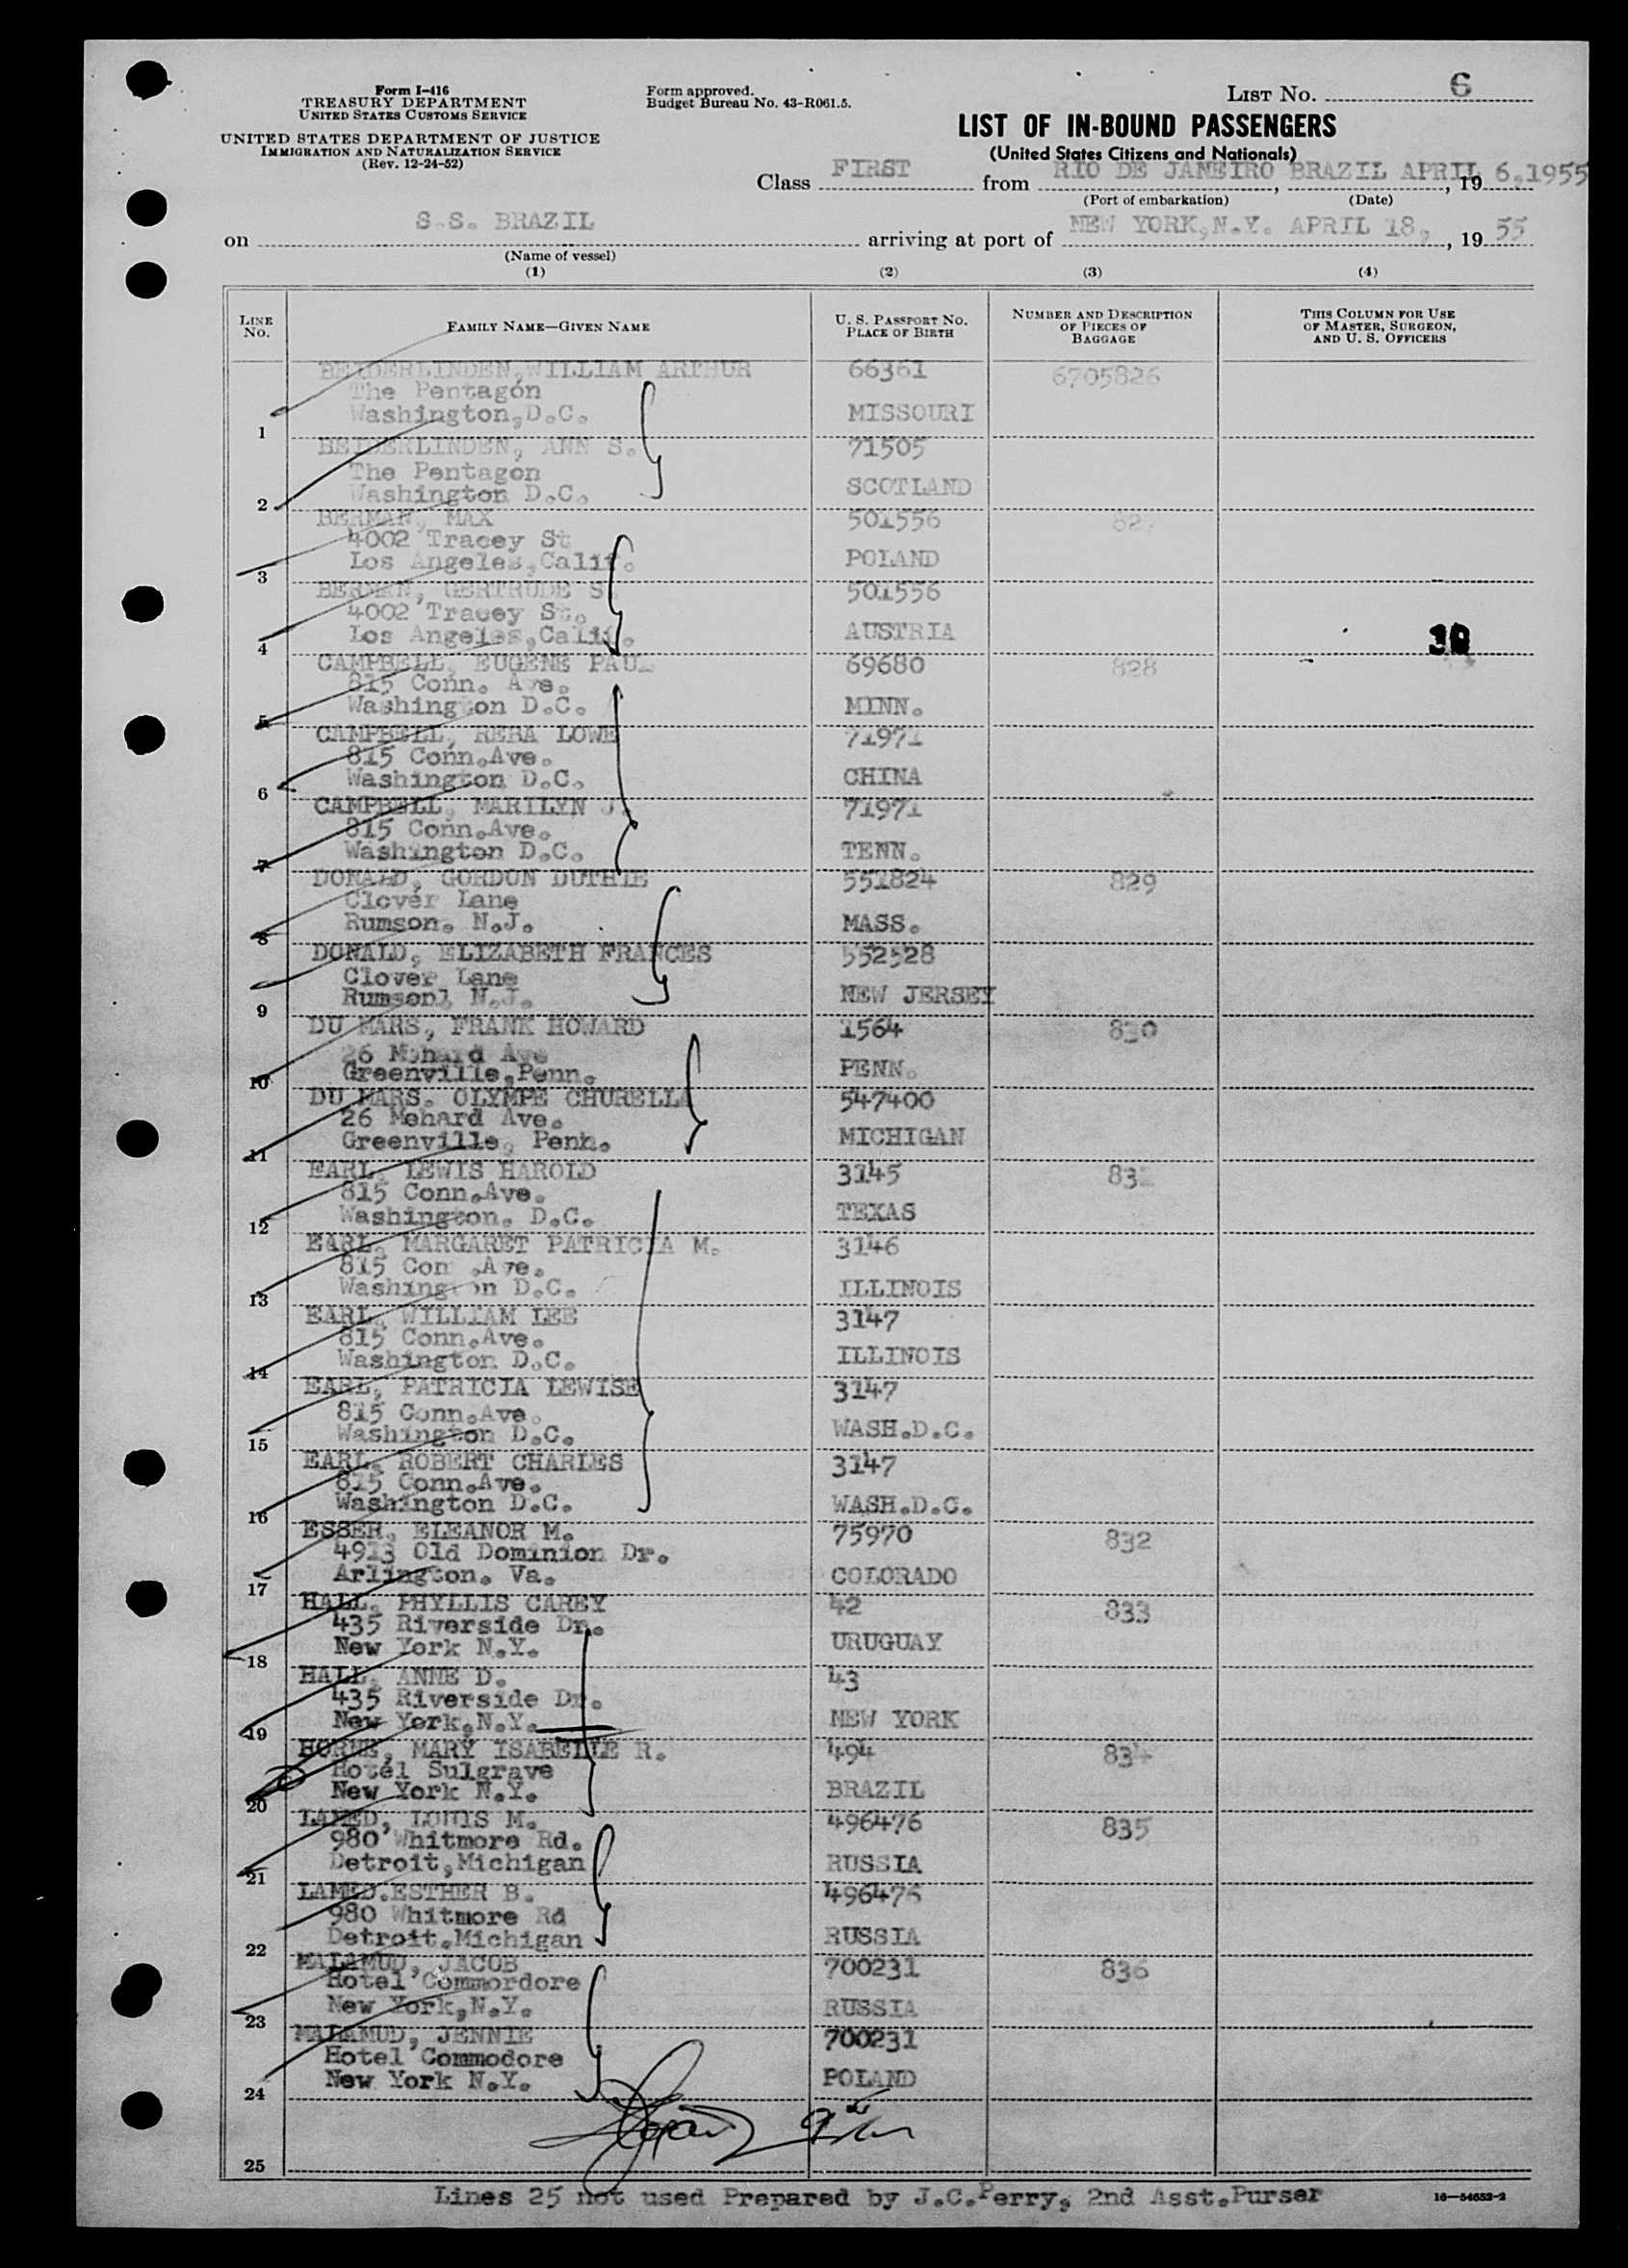 Form I-416
TREASURY DEPARTMENT
UNITED STATES CUSTOMS SERVICE
UNITED STATES DEPARTMENT OF JUSTICE
IMMIGRATION AND NATURALIZATION SERVICE
(Rev. 12-24-52)
Form approved.
Budget Bureau No. 43-R061.5.
LIST NO. 6
LIST OF IN-BOUND PASSENGERS
(United States Citizens and Nationals)
Class FIRST from RIO DE JANEIRO BRAZIL APRIL 6,1955, 19
(Port of embarkation) (Date)
on S.S. BRAZIL arriving at port of NEW YORK,N.Y. APRIL 18, , 19 55
(Name of vessel)
(1) (2) (3) (4)
LINE NO.
FAMILY NAME—GIVEN NAME
U. S. PASSPORT NO.
PLACE OF BIRTH
NUMBER AND DESCRIPTION
OF PIECES OF
BAGGAGE
THIS COLUMN FOR USE
OF MASTER, SURGEON,
AND U. S. OFFICERS
BEIDERLINDEN,WILLIAM ARTHUR 66361 6705826
The Pentagon
Washington,D.C. MISSOURI
1
BEIDERLINDEN, ANN S. 71505
The Pentagon
Washington D.C. SCOTLAND
2
BERMAN, MAX 501556
4002 Tracey St
Los Angeles,Calif. POLAND
3
BERMAN, GERTRUDE S. 501556
4002 Tracey St.
Los Angeles,Calif. AUSTRIA
4
CAMPBELL, EUGENE PAUL 69680 828
815 Conn. Ave.
Washington D.C. MINN.
5
CAMPBELL, REBA LOWE 71971
815 Conn.Ave.
Washington D.C. CHINA
6
CAMPBELL, MARILYN J. 71971
815 Conn.Ave.
Washington D.C. TENN.
7
DONALD, GORDON DUTHIE 551824 829
Clover Lane
Rumson. N.J. MASS.
8
DONALD, ELIZABETH FRANCES 552528
Clover Lane
Rumson, N.J. NEW JERSEY
9
DU MARS, FRANK HOWARD 1564 830
26 Mehard Ave
Greenville,Penn. PENN.
10
DU MARS. OLYMPE CHURELLA 547400
26 Mehard Ave.
Greenville, Penn. MICHIGAN
11
EARL, LEWIS HAROLD 3145 831
815 Conn.Ave.
Washington. D.C. TEXAS
12
EARL, MARGARET PATRICIA M. 3146
815 Con .Ave.
Washington D.C. ILLINOIS
13
EARL, WILLIAM LEE 3147
815 Conn.Ave.
Washington D.C. ILLINOIS
14
EARL, PATRICIA LEWISE 3147
815 Conn.Ave.
Washington D.C. WASH.D.C.
15
EARL, ROBERT CHARLES 3147
815 Conn.Ave.
Washington D.C. WASH.D.C.
16
ESSER, ELEANOR M. 75970 832
4913 Old Dominion Dr.
Arlington. Va. COLORADO
17
HALL, PHYLLIS CAREY 42 833
435 Riverside Dr.
New York N.Y. URUGUAY
18
HALL, ANNE D. 43
435 Riverside Dr.
New York,N.Y. NEW YORK
19
HORNE, MARY ISABELLE R. 494 834
Hotel Sulgrave
New York N.Y. BRAZIL
20
LAMED, LOUIS M. 496476 835
980 Whitmore Rd.
Detroit,Michigan RUSSIA
21
LAMED.ESTHER B. 496476
980 Whitmore Rd
Detroit.Michigan RUSSIA
22
MALAMUD, JACOB 700231 836
Hotel Commordore
New York,N.Y. RUSSIA
23
MALAMUD, JENNIE 700231
Hotel Commodore
New York N.Y. POLAND
24
25
Lines 25 not used Prepared by J.C.Perry, 2nd Asst.Purser
16—54652-2